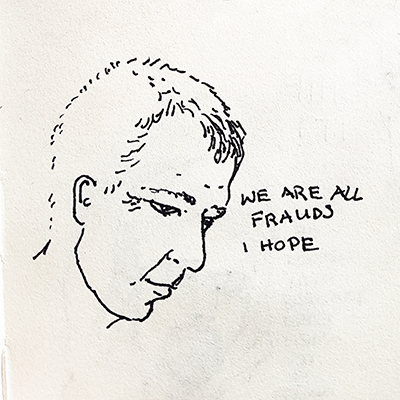 WE ARE ALL
FRAUDS
I HOPE